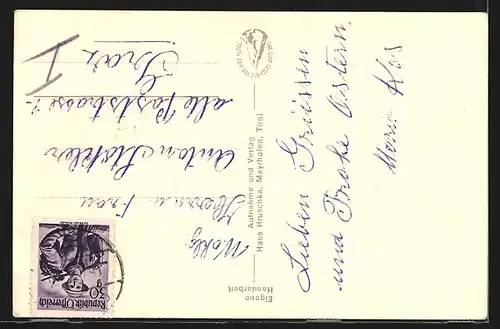 Lieben Grüssen
und Frohe Ostern
Wohlg.
Herrn u. Frau
Anton
alte Poststrasse
Graz
I
Eigene
Handarbeit
Aufnahme und Verlag
Hans Hruschka, Mayrhofen, Tirol
30
g
Republik Österreich